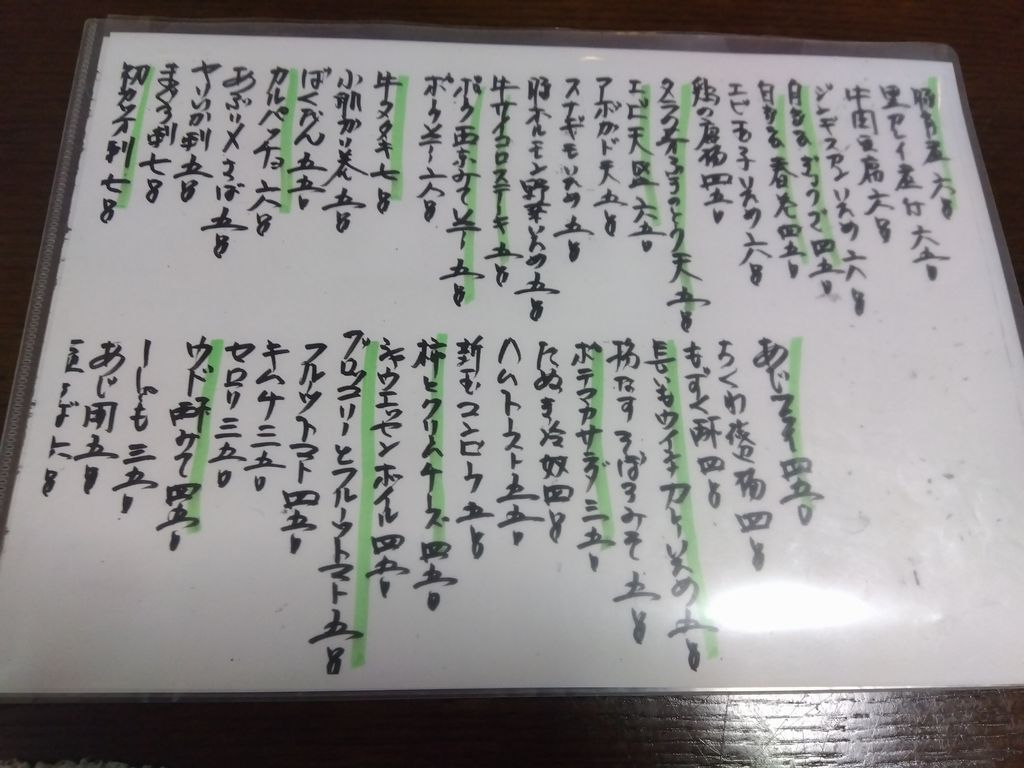 豚角煮 六〇〇
黒カレイ煮付 六五〇
牛肉豆腐 六〇〇
ジンギスカンいため 六〇〇
自家製ぎょうざ 四五〇
自家製春巻 四五〇
エビ玉子いため 六〇〇
鶏の唐揚 四五〇
タラの芽ふきのとう天 五〇〇
エビ天盛 六五〇
アボカド天 五〇〇
スナギモいため 五〇〇
豚ホルモン野菜いため 五〇〇
牛サイコロステーキ 五〇〇
五〇〇
ポークソテー 六〇〇
牛タタキ 七〇〇
小肌かり巻 五〇〇
ばくだん 五五〇
カルパッチョ 六〇〇
あぶり〆さば 五〇〇
やりいか刺 五〇〇
まぐろ刺 七〇〇
初カツオ刺 七〇〇
あじフライ 四五〇
ちくわ磯辺揚 四〇〇
もずく酢 四〇〇
長いもウインナーカレーいため 五〇〇
揚なすそぼろみそ 五〇〇
ポテマカサラダ 三五〇
たぬき冷奴 四〇〇
ハムトースト 五五〇
新玉コンビーフ 五〇〇
柿とクリームチーズ 四五〇
シャウエッセンボイル 四五〇
ブロッコリーとフルーツトマト 五〇〇
フルーツトマト 四五〇
キムチ 三五〇
セロリ 三五〇
ウド酢みそ 四五〇
三五〇
五〇〇
六〇〇